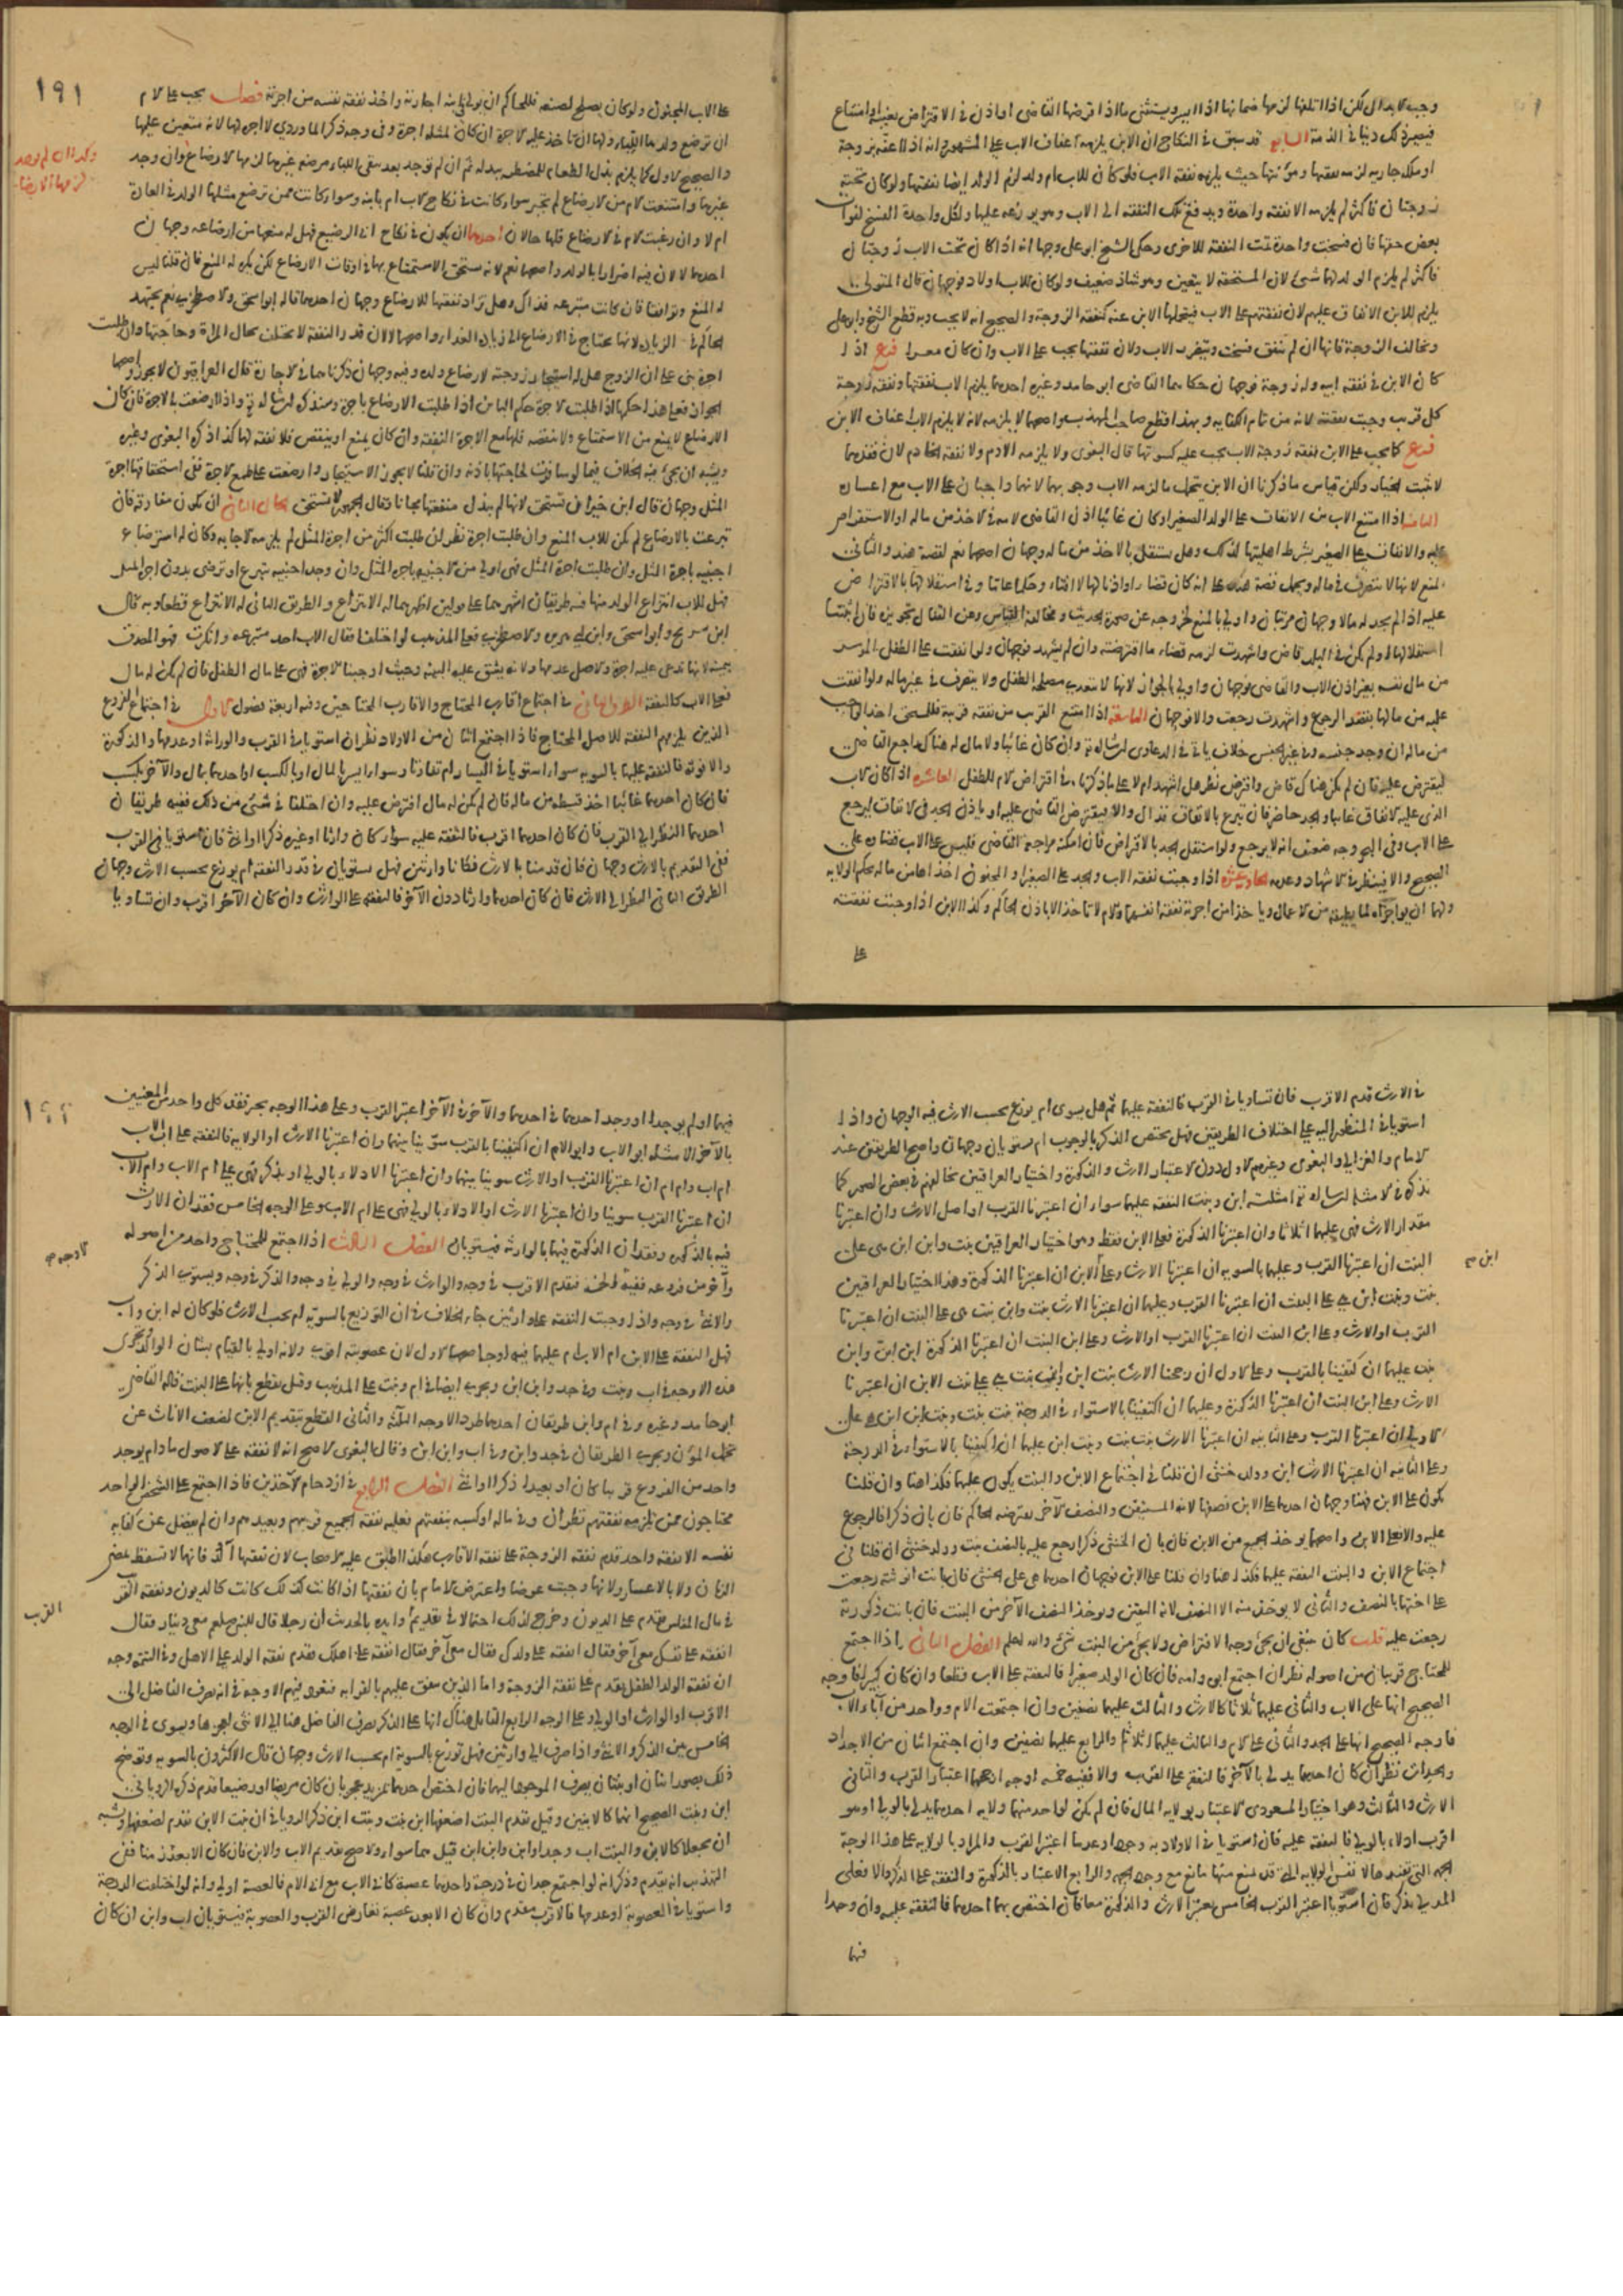 وجب الابدال لكن اذا اتلفها لزمها ضمانها اذا ايسر ويستثنى ما اذا اقرضها القاضي او اذن في الاقتراض لغيبة او امتناع
فيصير ذلك دينا في الذمة السابع قد سبق في النكاح ان الابن يلزمه اعفاف الاب على المشهور انه اذا اعفه بزوجة
او ملكه جارية لزمه نفقتها ومؤنتها حيث يلزمه نفقة الاب فلو كان للاب ام ولد لزم الولد ايضا نفقتها ولو كان تحته
زوجتان فاكثر لم يلزمه الا نفقة واحدة ويدفع تلك النفقة الى الاب وهو يوزعه عليها ولكل واحدة الفسخ لفوات
بعض حقها فان فسخت واحدة تمت النفقة للاخرى وحكى الشيخ ابو علي وجها انه اذا كان تحت الاب زوجتان
فاكثر لم يلزم الولد لهما شيء لان المستحقة لا يتعين وهو شاذ ضعيف ولو كان للاب اولاد فوجهان قال المتولي
يلزم للابن الانفاق عليهم لان نفقتهم على الاب فيتحملها الابن عنه كنفقة الزوجة والصحيح انه لا يجب وبه قطع الشيخ وابو علي
وتخالف الزوجة فانها ان لم ينفق فسخت وتتضرر الاب ولان نفقتها يجب على الاب وان كان معسرا فرع اذا
كان الابن في نفقة ابيه وله زوجة فوجهان حكاهما القاضي ابو حامد وغيره احدهما يلزم الاب نفقتها ونفقة زوجة
كل قريب وجبت نفقته لانه من تمام الكفاية وبهذا قطع صاحب المهذب واصحهما لا يلزمه لانه لا يلزم الاب اعفاف الابن
فرع كما يجب على الابن نفقة زوجة الاب يجب عليه كسوتها قال البغوي ولا يلزمه الادم ولا نفقة الخادم لان فقدهما
لا يثبت الخيار ولكن قياس ما ذكرنا ان الابن يتحمل ما لزم الاب وجوبهما لانهما واجبان على الاب مع اعساره
الثامن اذا امتنع الاب من الانفاق على الولد الصغير او كان غائبا اذن القاضي لامه في الاخذ من ماله او الاستقراض
عليه والانفاق على الصغير بشرط اهليتها لذلك وهل يستقل بالاخذ من ماله وجهان اصحهما نعم لقصة هند والثاني
المنع لانها لا تتصرف في ماله ويحمل قصة هند على انه كان قضاء او اذنا لها لا افتاء وحكما عاما وفي استقلالها بالاقتراض
عليه اذا لم يجد له مالا وجهان مرتبان واولى بالمنع لخروجه عن صورة الحديث ومخالفة القياس وعن القفال تجويزه فان اثبتنا
استقلالها او لم يكن في البلد قاض واشهدت لزمه قضاء ما اقترضته وان لم يشهد فوجهان ولو انفقت على الطفل الموسر
من مال نفسه بغير اذن الاب والقاضي فوجهان واولى بالجواز لانها لا تتعدى مصلحة الطفل ولا يتصرف في غير ماله ولو انفقت
عليه من مالها بقصد الرجوع واشهدت رجعت والا فوجهان التاسعة اذا امتنع القريب من نفقة قريبه فللمستحق اخذ الواجب
من ماله ان وجد جنسه وفي غير الجنس خلاف ياتي في الدعاوى ان شاء الله وان كان غائبا ولا مال له هناك راجع القاضي
ليقترض عليه فان لم يكن هناك قاض واقترض نظر هل اشهد ام لا على ما ذكرناه في اقتراض الام للطفل العاشرة اذا كان الاب
الذي عليه الانفاق غائبا والجد حاضر فان تبرع بالانفاق فذاك والا فيقترض القاضي عليه او ياذن للجد في الانفاق ليرجع
على الاب وفي البحر وجه ضعيف انه لا يرجع ولو استقل الجد بالاقتراض فان امكنه مراجعة القاضي فليس على الاب قضاؤه على
الصحيح والا فينظر في الاشهاد وعدمه الحادي عشرة اذا وجبت نفقة الاب والجد على الصغير او المجنون اخذاها من ماله بحكم الولاية
ولهما ان يواجراه لما يطيقه من الاعمال وياخذا من اجرته نفقة انفسهما والام لا تاخذ الا باذن الحاكم وكذا الابن اذا وجبت نفقته
على
١٩١
على الاب المجنون ولو كان يصلح لصنعة فللحاكم ان يولي ابنه اجارته واخذ نفقة نفسه من اجرته فصل يجب على الام
ان ترضع ولدها اللباء ولها ان تاخذ عليه الاجرة ان كان لمثله اجرة وفي وجه ذكره الماوردي لا اجرة لها لانه متعين عليها
والصحيح الاول كما يلزم بذل الطعام للمضطر ببدله ثم ان لم توجد بعد سقي اللباء مرضعة غيرها لزمها الارضاع وان وجد
غيرها وامتنعت الام من الارضاع لم تجبر سواء كانت في نكاح الاب ام باينة وسواء كانت ممن ترضع مثلها الولد في العادة
ام لا وان رغبت الام في الارضاع فلها حالان احدهما ان يكون في نكاح ابي الرضيع فهل له منعها من ارضاعه وجهان
احدهما لا لان فيه اضرارا بالولد واصحهما نعم لانه يستحق الاستمتاع بها في اوقات الارضاع لكن يكره له المنع فان قلنا ليس
له المنع وتوافقا فان كانت متبرعة فذاك وهل تزاد نفقتها للارضاع وجهان احدهما قاله ابو اسحق والاصطخري نعم يجتهد
الحاكم في الزيادة لانها يحتاج في الارضاع الى زيادة الغذاء واصحهما لا لان قدر النفقة لا يختلف بحال المراة وحاجتها وان طلبت
اجرة بني على ان الزوج هل له استيجار زوجته لارضاع ولده وفيه وجهان ذكرناهما في الاجارة قال العراقيون لا يجوز واصحهما
الجواز فعلى هذا حكمها اذا طلبت الاجرة حكم البائن اذا طلبت الارضاع باجرة وسنذكره ان شاء الله تعالى واذا ارضعت بالاجرة فان كان
الارضاع لا يمنع من الاستمتاع ولا ينقصه فلها مع الاجرة النفقة وان كان يمنع او ينقص فلا نفقة لها كذا ذكره البغوي وغيره
ويشبه ان يجيء فيه الخلاف فيما لو سافرت لحاجتها باذنه وان قلنا لا يجوز الاستيجار وارضعت على طمع الاجرة ففي استحقاقها اجرة
المثل وجهان قال ابن خيران تستحق لانها لم يبذل منفعتها مجانا وقال الجمهور لا تستحق الحال الثاني ان يكون مفارقة فان
تبرعت بالارضاع لم يكن للاب المنع وان طلبت اجرة نظر ان طلبت اكثر من اجرة المثل لم يلزمه الاجابة وكان له استرضاع
اجنبية باجرة المثل وان طلبت اجرة المثل فهي اولى من الاجنبية باجرة المثل وان وجد اجنبية تتبرع او ترضى بدون اجرة المثل
فهل للاب انتزاع الولد منها فيه طريقان اشهرهما على قولين اظهرهما له الانتزاع والطريق الثاني له الانتزاع قطعا وبه قال
ابن سريج وابو اسحق وابن ابي هريرة والاصطخري فعلى المذهب لو اختلفا فقال الاب اجد متبرعة وانكرت فهو المصدق
بيمينه لانها تدعي عليه اجرة والاصل عدمها ولانه يشق عليه البينة وحيث اوجبنا الاجرة فهي على مال الطفل فان لم يكن له مال
فعلى الاب كالنفقة الطرف الثاني في اجتماع اقارب المحتاج والاقارب المحتاجين وفيه اربعة فصول الاول في اجتماع الفروع
الذين يلزمهم النفقة للاصل المحتاج فاذا اجتمع اثنان من الاولاد نظر ان استويا في القرب والوراثة او عدمها والذكورة
والانوثة فالنفقة عليهما بالسوية سواء استويا في اليسار ام تفاوتا وسواء ايسرا بالمال او بالكسب او احدهما بمال والآخر بكسب
فان كان احدهما غائبا اخذ قسطه من ماله فان لم يكن له مال اقترض عليه وان اختلفا في شيء من ذلك ففيه طريقان
احدهما النظر الى القرب فان كان احدهما اقرب فالنفقة عليه سواء كان وارثا او غيره ذكرا او انثى فان استويا في القرب
ففي التقديم بالارث وجهان فان قدمنا بالارث فكانا وارثين فهل يستويان في قدر النفقة ام يوزع بحسب الارث وجهان
الطريق الثاني النظر الى الارث فان كان احدهما وارثا دون الآخر فالنفقة على الوارث وان كان الآخر اقرب وان تساويا
وكذا ان لم يوجد
لزمها الارضاع
في الارث قدم الاقرب فان تساويا في القرب فالنفقة عليهما ثم هل يسوى ام يوزع بحسب الارث فيه الوجهان واذا
استويا في المنظور اليه على اختلاف الطريقين فهل يختص الذكر بالوجوب ام يستويان وجهان واصح الطريقين عند
الامام والغزالي والبغوي وغيرهم الاول دون الاعتبار الارث والذكورة واختيار العراقيين يخالفهم في بعض الصور كما
نذكره في الامثلة ان شاء الله تعالى امثلته ابن وبنت النفقة عليهما سواء ان اعتبرنا القرب او اصل الارث وان اعتبرنا
مقدار الارث فهي عليهما اثلاثا وان اعتبرنا الذكورة فعلى الابن فقط وهو اختيار العراقيين بنت وابن ابن هي على
ابن ص
البنت ان اعتبرنا القرب وعليهما بالسوية ان اعتبرنا الارث وعلى الابن ان اعتبرنا الذكورة وهذا اختيار العراقيين
بنت وبنت ابن هي على البنت ان اعتبرنا القرب وعليهما ان اعتبرنا الارث بنت وابن بنت هي على البنت ان اعتبرنا
القرب او الارث وعلى ابن البنت ان اعتبرنا الذكورة ابن ابن وابن
بنت عليهما ان اكتفينا بالقرب وعلى الاول ان رجحنا الارث بنت ابن وابن بنت هي على بنت الابن ان اعتبرنا
الارث وعلى ابن البنت ان اعتبرنا الذكورة وعليهما ان اكتفينا بالاستواء في الدرجة بنت بنت وبنت ابن ابن هي على
الاولى ان اعتبرنا القرب وعلى الثانية ان اعتبرنا الارث بنت بنت وبنت ابن عليهما ان اكتفينا بالاستواء في الدرجة
وعلى الثانية ان اعتبرنا الارث ابن وولد خنثى ان قلنا في اجتماع الابن والبنت يكون عليهما فكذا هنا وان قلنا
يكون على الابن فهنا وجهان احدهما على الابن نصفها لانه المستيقن والنصف الآخر يقترضه الحاكم فان بان ذكرا فالرجوع
عليه والا فعلى الابن واصحهما يوخذ الجميع من الابن فان بان الخنثى ذكرا رجع عليه بالنصف بنت وولد خنثى ان قلنا في
اجتماع الابن والبنت النفقة عليهما فكذا هنا وان قلنا على الابن فوجهان احدهما هي على الخنثى فان بانت انوثته رجعت
على اختها بالنصف والثاني لا يوخذ منه الا النصف لانه اليقين ويوخذ النصف الآخر من البنت فان بانت ذكورته
رجعت عليه قلت كان ينبغي ان يجيء وجه الاقتراض ولا يجيء من البنت شيء والله اعلم الفصل الثاني اذا اجتمع
للمحتاج قريبان من اصوله نظر ان اجتمع ابوه وامه فان كان الولد صغيرا فالنفقة على الاب قطعا وان كان كبيرا فاوجه
الصحيح انها على الاب والثاني عليهما اثلاثا كالارث والثالث عليهما نصفين وان اجتمعت الام وواحد من آباء الاب
فاوجه الصحيح انها على الجد والثاني على الام والثالث عليهما اثلاثا والرابع عليهما نصفين وان اجتمع اثنان من الاجداد
والجدات نظر ان كان احدهما يدلي بالآخر فالنفقة على القريب والا ففيه خمسة اوجه اصحها اعتبار القرب والثاني
الارث والثالث وهو اختيار المسعودي الاعتبار بولاية المال فان لم يكن لواحد منهما ولاية احدهما يدلي بالولي او هو
اقرب ادلاء بالولي فالنفقة عليه فان استويا في الادلاء به وجودا وعدما اعتبر القرب والمراد بالولاية على هذا الوجه
الجهة التي تفيدها لا نفس الولاية التي قد يمنع منها مانع مع وجود الجهة والرابع الاعتبار بالذكورة والنفقة على الذكر والا فعلى
المدلي بذكر فان استويا اعتبر القرب الخامس يعتبر الارث والذكورة معا فان اختص بهما احدهما فالنفقة عليه وان وجدا
فيهما
فيهما او لم يوجدا او وجد احدهما في احدهما والآخر في الآخر اعتبر القرب وعلى هذا الوجه يجبر فقد كل واحد من المعنيين
بالآخر الامثلة ابو الاب وابو الام ان اكتفينا بالقرب سوينا بينهما وان اعتبرنا الارث او الولاية فالنفقة على اب الاب
ام اب وام ام ان اعتبرنا القرب او الارث سوينا بينهما وان اعتبرنا الادلاء بالولي او بذكر فهي على ام الاب وام الاب
ان اعتبرنا القرب سوينا وان اعتبرنا الارث او الادلاء بالولي فهي على ام الاب وعلى الوجه الخامس فقدان الارث
فيه بالذكورة وفقدان الذكورة فيها بالوارثة فيستويان الفصل الثالث اذا اجتمع للمحتاج واحد من اصوله
الاوجه ص
وآخر من فروعه ففيه الاوجه الخمسة فيقدم الاقرب في وجه والوارث في وجه والولي في وجه والذكر في وجه ويستوي الذكر
والانثى في وجه واذا وجبت النفقة على وارثين جاء الخلاف في ان التوزيع بالسوية ام بحسب الارث فلو كان له ابن واب
فهل النفقة على الابن ام الاب ام عليهما فيه اوجه اصحها الاول لان عصوبته اقوى ولانه اولى بالقيام بشان الوالد ويجري
هذه الاوجه في اب وبنت وفي جد وابن ابن ويجري ايضا في ام وبنت على المذهب وقيل يقطع بانها على البنت قاله القاضي
ابو حامد وغيره وفي ام وابن طريقان احدهما طرد الاوجه الثلاثة والثاني القطع بتقديم الابن لضعف الاناث عن
تحمل المؤن ويجري الطريقان في جد وابن وفي اب وابن ابن وقال البغوي الاصح انه لا نفقة على الاصول مادام يوجد
واحد من الفروع قريبا كان او بعيدا ذكرا او انثى الفصل الرابع في ازدحام الآخذين فاذا اجتمع على الشخص الواحد
محتاجون ممن يلزمه نفقتهم نظر ان وفى ماله او كسبه بنفقتهم فعليه نفقة الجميع قريبهم وبعيدهم وان لم يفضل عن كفاية
نفسه الا نفقة واحد قدم نفقة الزوجة على نفقة الاقارب هكذا اطلق عليه الاصحاب لان نفقتها آكد فانها لا تسقط بمضي
الزمان ولا بالاعسار ولانها وجبت عوضا واعترض الامام بان نفقتها اذا كانت كذلك كانت كالديون ونفقة القريب
القريب
في مال المفلس تقدم على الديون وخرج لذلك احتمالا في تقديمه وايده بالحديث ان رجلا قال للنبي صلعم معي دينار فقال
انفقه على نفسك قال معي آخر فقال انفقه على ولدك فقال معي آخر فقال انفقه على اهلك فقدم نفقة الولد على الاهل وفي التتمة وجه
ان نفقة الولد الطفل يقدم على نفقة الزوجة واما الذين ينفق عليهم بالقرابة فتعود فيهم الاوجه في انه يصرف الفاضل الى
الاقرب او الوارث او الولي وعلى الوجه الرابع القائل هناك انها على الذكر يصرف الفاضل هنا الى الانثى لعجزها ويسوى في الوجه
الخامس بين الذكر والانثى واذا صرف الى وارثين فهل توزع بالسوية ام بحسب الارث وجهان قال الاكثرون بالسوية وتوضح
ذلك بصور ابنان او بنتان يصرف الموجود اليهما فان اختص احدهما بمزيد عجز بان كان مريضا او رضيعا قدم ذكره الروياني
ابن وبنت الصحيح انهما كالابنين وقيل تقدم البنت لضعفها ابن بنت وبنت ابن ذكر الروياني ان بنت الابن تقدم لضعفها ويشبه
ان يجعلا كالابن والبنت اب وجد او ابن وابن ابن قيل هما سواء والاصح تقديم الاب والابن فان كان الابعد زمنا ففي
التهذيب انه يقدم وذكر انه لو اجتمع جدان في درجة واحدهما عصبة كابي الاب مع ابي الام فالعصبة اولى وانه لو اختلفت الدرجة
واستويا في العصوبة او عدمها فالاقرب مقدم وان كان الابعد عصبة تعارض القرب والعصوبة فيستويان اب وابن ان كان